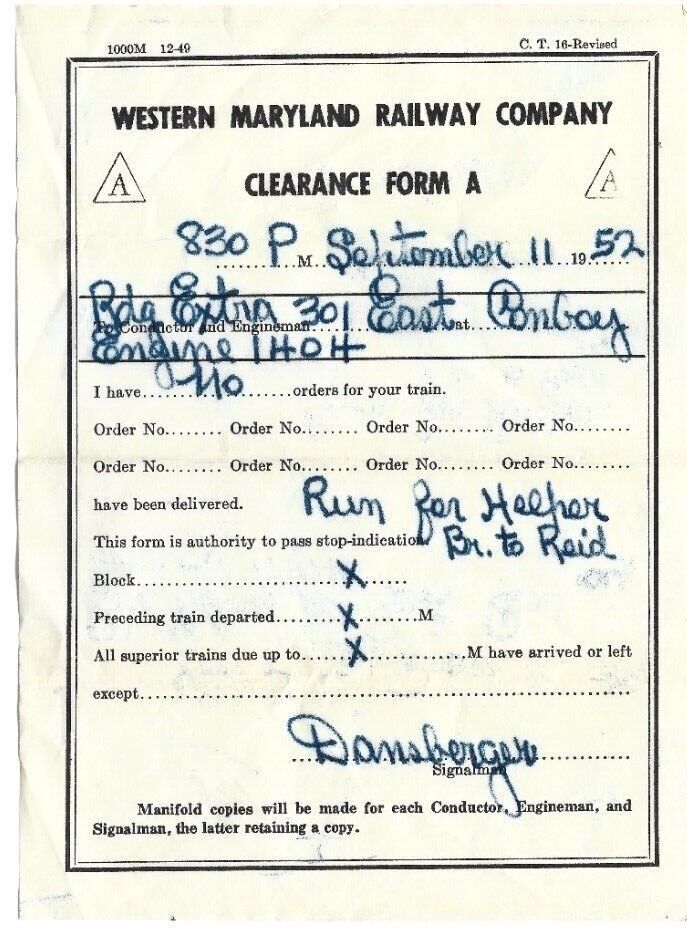 1000M 12-49 C. T. 16-Revised
WESTERN MARYLAND RAILWAY COMPANY
A CLEARANCE FORM A A
830 P M. September 11 1952
Rdg Extra 301 East at Ponboy
To Conductor and Engineman
Engine 1404
I have No orders for your train.
Order No........ Order No........ Order No........ Order No........
Order No........ Order No........ Order No........ Order No........
have been delivered. Run for Helper
This form is authority to pass stop-indication Br. to Reid
Block X
Preceding train departed X M
All superior trains due up to X M have arrived or left
except
Dansberger
Signalman
Manifold copies will be made for each Conductor, Engineman, and
Signalman, the latter retaining a copy.